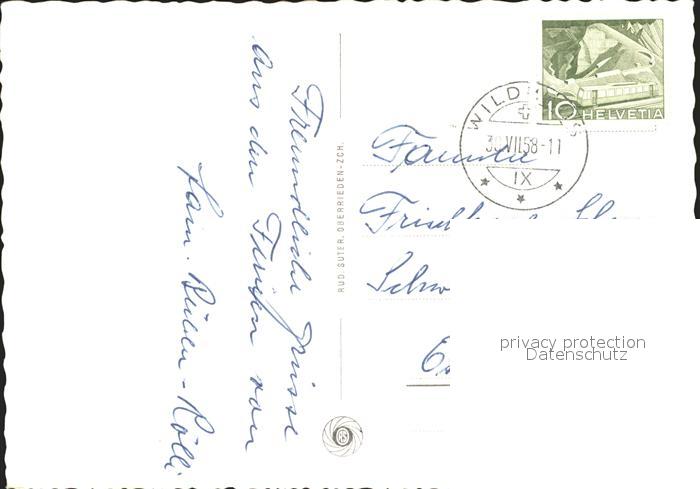 Freundliche Grüsse
aus den Ferien von
Fam. Bülla-Rölli
RUD. SUTER, OBERRIEDEN-ZCH.
10 HELVETIA
WILDHAUS
30.VII.58-11
IX
Familie
privacy protection
Datenschutz